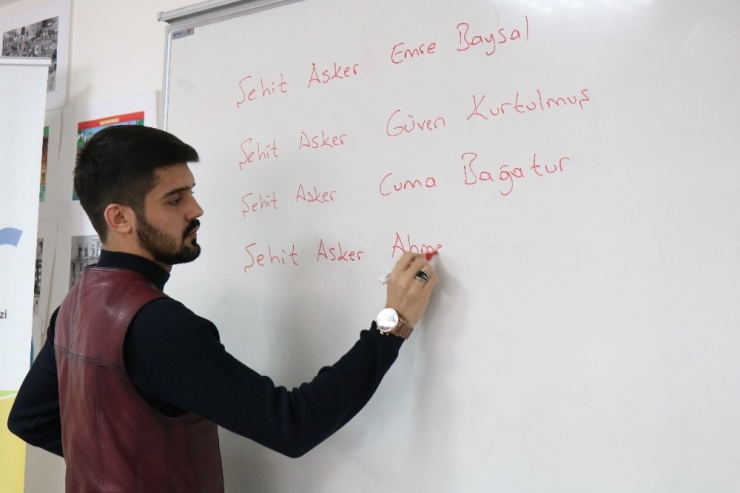 Şehit Asker Emre Baysal
Şehit Asker Güven Kurtulmuş
Şehit Asker Cuma Bağatur
Şehit Asker Ahme